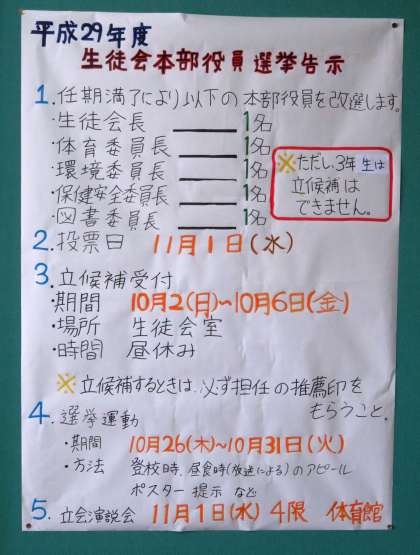 平成29年度
生徒会本部役員選挙告示
1. 任期満了により以下の本部役員を改選します。
・生徒会長 1名
・体育委員長 1名
・環境委員長 1名
・保健安全委員長 1名
・図書委員長 1名
※ただし、3年生は
立候補は
できません。
2. 投票日 11月1日(水)
3. 立候補受付
・期間 10月2(日)~10月6日(金)
・場所 生徒会室
・時間 昼休み
※立候補するときは、必ず担任の推薦印を
もらうこと。
4. 選挙運動
・期間 10月26(木)~10月31日(火)
・方法 登校時、昼食時(放送による)のアピール
ポスター提示 など
5. 立会演説会 11月1日(水) 4限 体育館